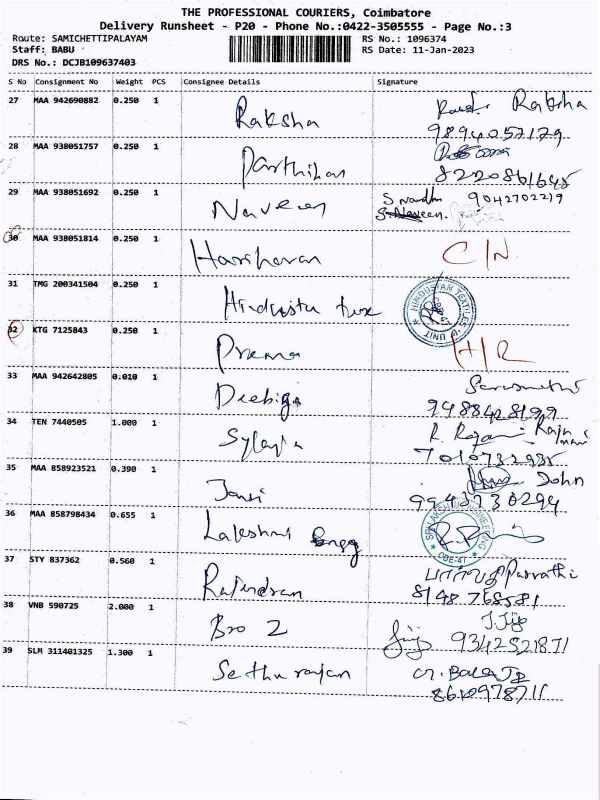 THE PROFESSIONAL COURIERS, Coimbatore
Delivery Runsheet - P20 - Phone No.:0422-3505555 - Page No.:3
Route: SAMICHETTIPALAYAM RS No.: 1096374
Staff: BABU RS Date: 11-Jan-2023
DRS No.: DCJB109637403
S No Consignment No Weight PCS Consignee Details Signature
27 MAA 942690882 0.250 1 Raksha Raksha
9894057179
28 MAA 938051757 0.250 1 Parthiban
8220861645
29 MAA 938051692 0.250 1 Naveen S Nandhu 9042702219
S. Naveen.
30 MAA 938051814 0.250 1 Hariharan C/N
31 TMG 200341504 0.250 1 Hindustan tex HINDUSTAN TEXTILES UNIT
32 KTG 7125843 0.250 1 Prema H/R
33 MAA 942642805 0.010 1 Deebiga
9488428199
34 TEN 7440505 1.000 1 Sylavia R. Rajamani
7010732935
35 MAA 858923521 0.390 1 Jansi John
9943730294
36 MAA 858798434 0.655 1 Lakshmi Engg SRI LAKSHMI ENGINEERING CBE-41
37 STY 837362 0.560 1 Rajendran பார்வதி Parvathi
8148768581
38 VNB 590725 2.000 1 Bro 2 J. Jijo
9342521871
39 SLM 311401325 1.300 1 Sethurajan
8610978711